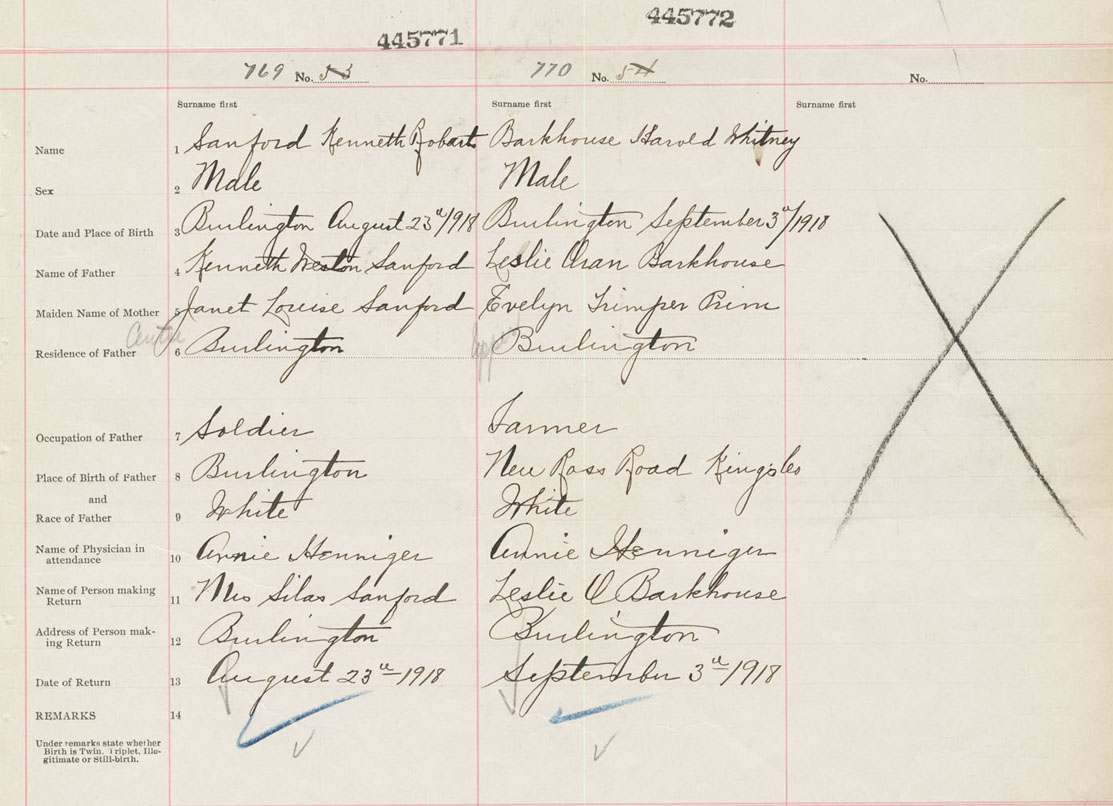 445771 445772
769 No. 53 770 No. 54 No.
Surname first Surname first Surname first
Name 1 Sanford Kenneth Robart Barkhouse Harold Whitney
Sex 2 Male Male
Date and Place of Birth 3 Burlington August 23rd/1918 Burlington September 3rd/1918
Name of Father 4 Kenneth Weston Sanford Leslie Oran Barkhouse
Maiden Name of Mother 5 Janet Louise Sanford Evelyn Trimper Prim
Centre
Residence of Father 6 Burlington Burlington
Occupation of Father 7 Soldier Farmer
Place of Birth of Father 8 Burlington New Ross Road Kings Co
and
Race of Father 9 White White
Name of Physician in
attendance 10 Annie Henniger Annie Henniger
Name of Person making
Return 11 Mrs Silas Sanford Leslie O Barkhouse
Address of Person mak-
ing Return 12 Burlington Burlington
Date of Return 13 August 23rd 1918 September 3rd/1918
REMARKS 14
Under remarks state whether
Birth is Twin, Triplet, Ille-
gitimate or Still-birth.